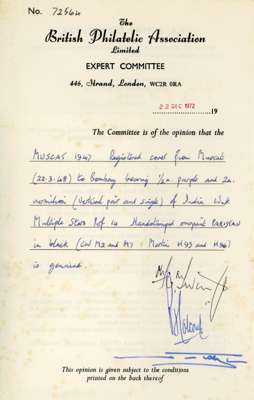 No. 72564
The
British Philatelic Association
Limited
EXPERT COMMITTEE
446, Strand, London, WC2R 0RA
22 DEC 1972 19
The Committee is of the opinion that the
MUSCAT 1947 Registered cover from Muscat
(22.3.48) to Bombay bearing 1/2a purple and 2a.
vermilion (vertical pair and single) of India Wmk
Multiple Stars
in black
is genuine.
This opinion is given subject to the conditions
printed on the back thereof